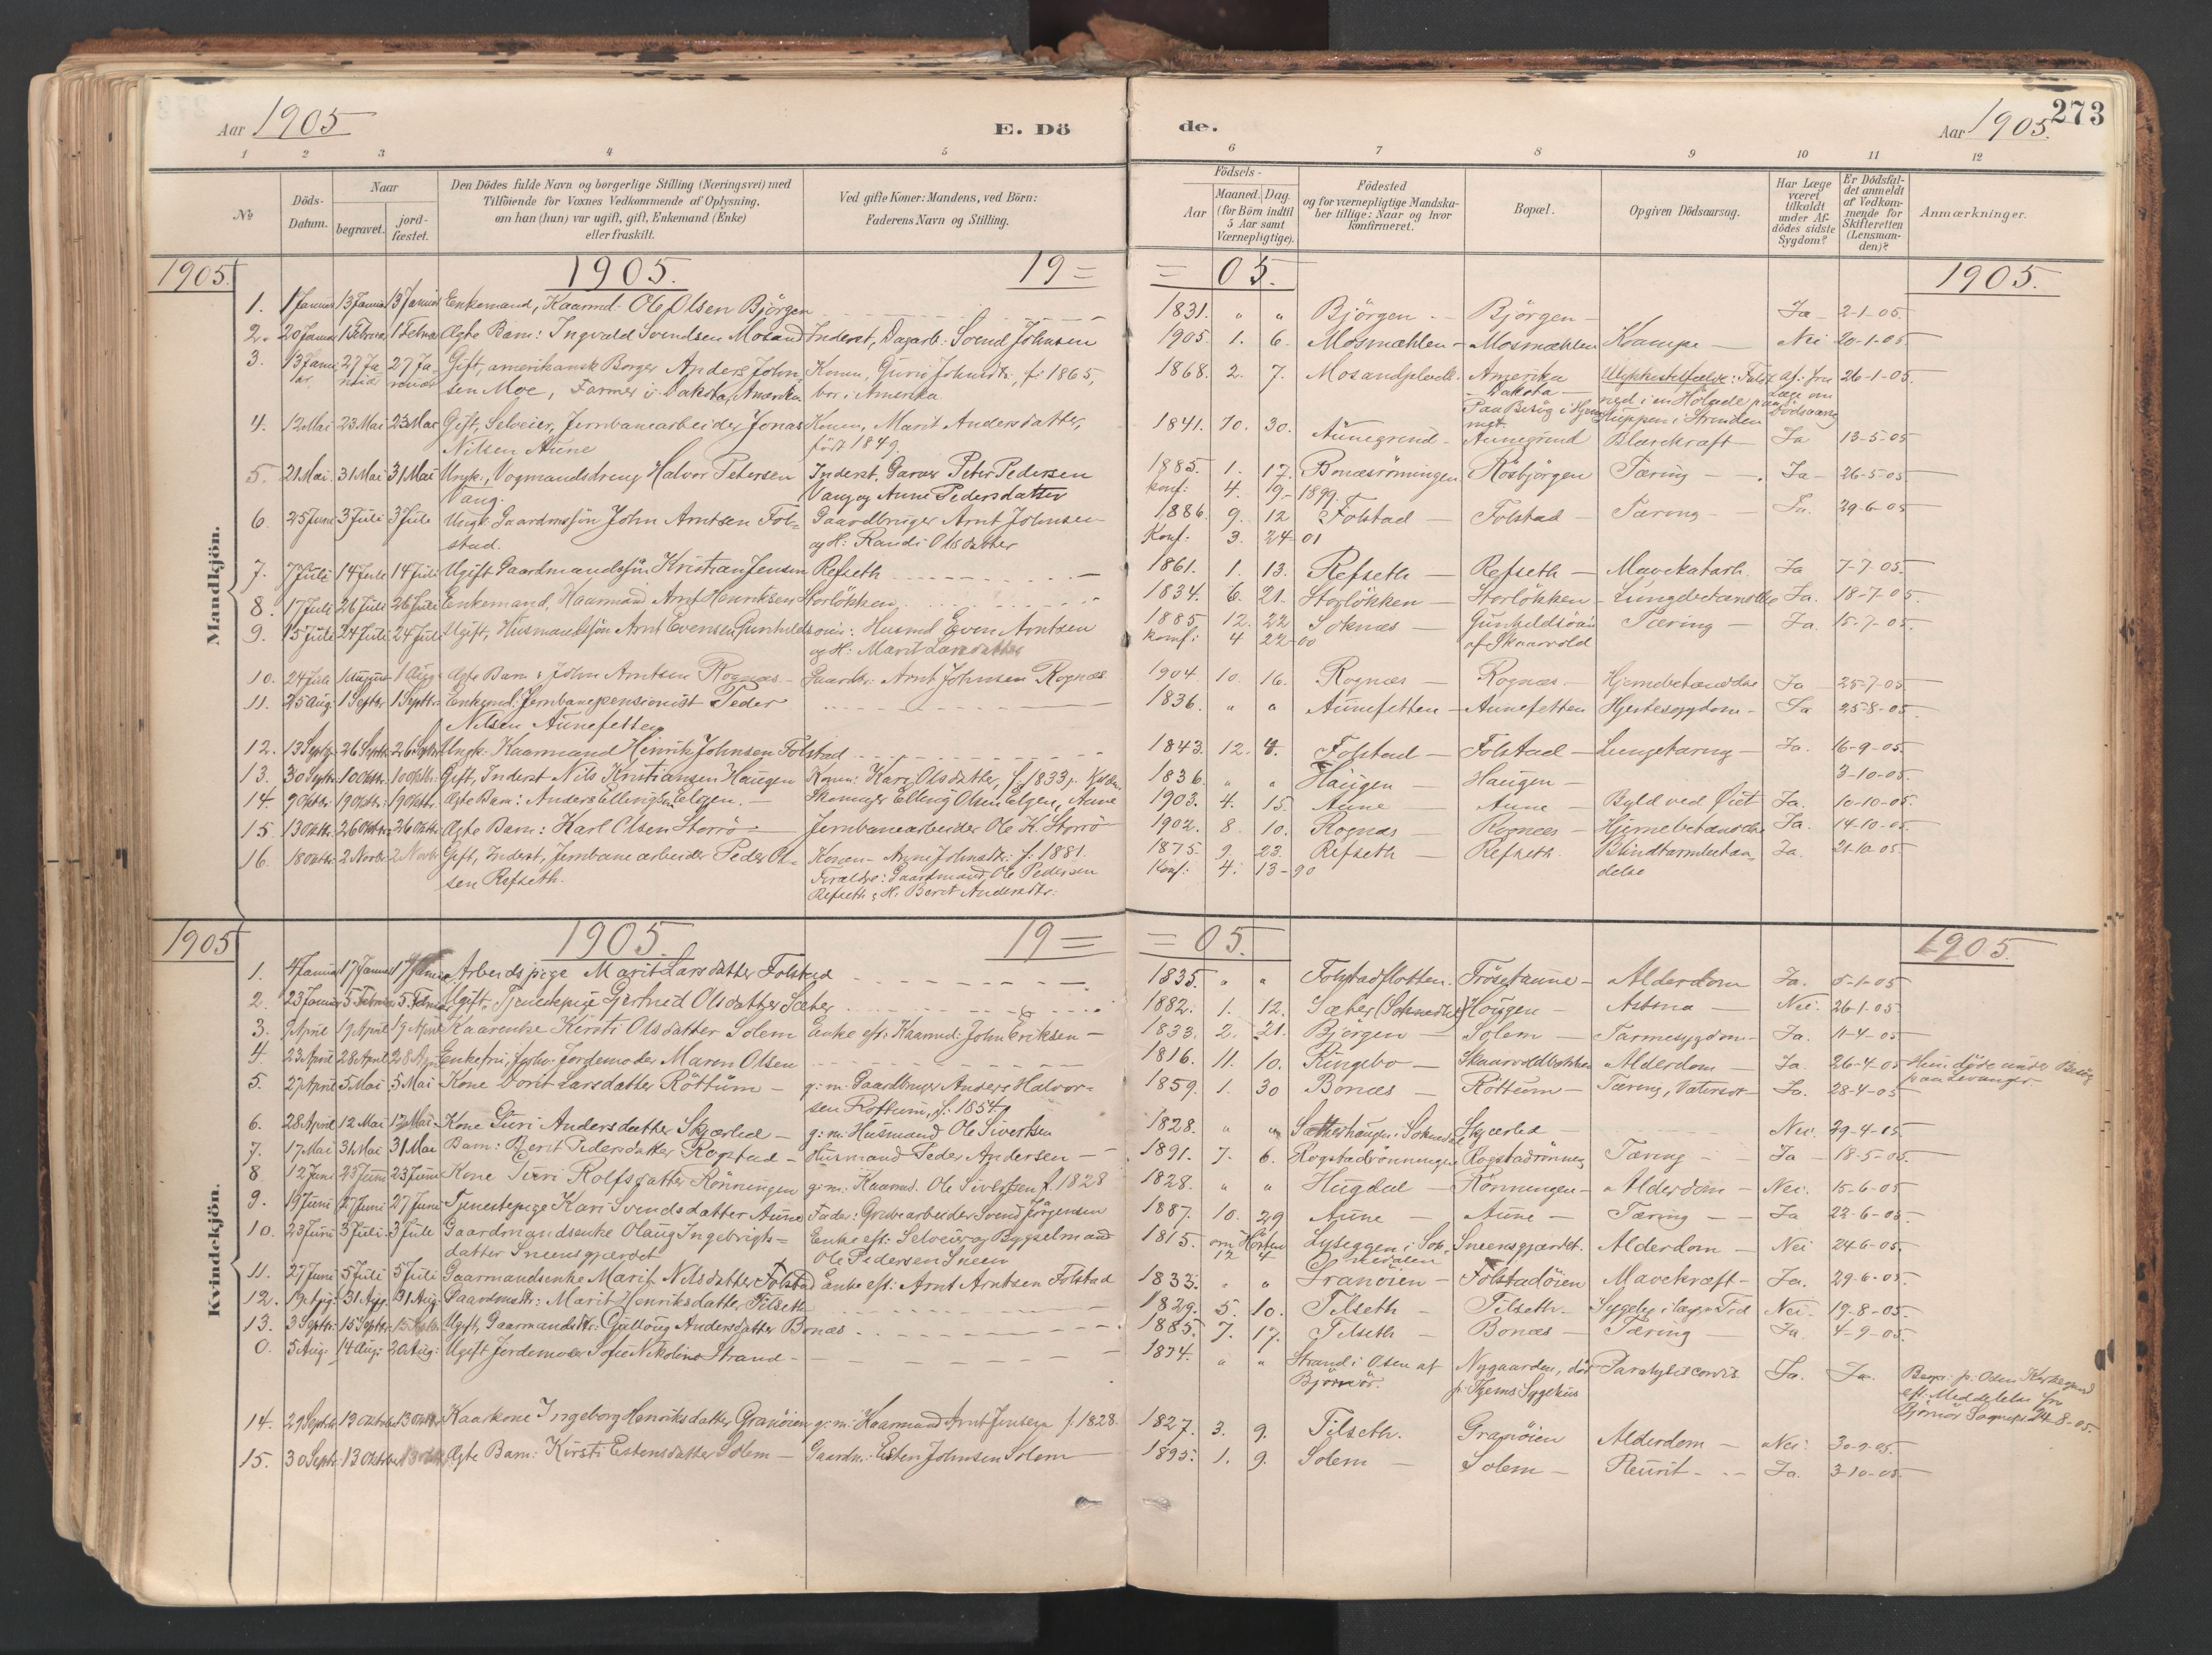 273
Aar 1905 E. Dö de. Aar 1905.
1 2 3 4 5 6 7 8 9 10 11 12
No
Döds-Datum.
Naar
begravet.
jord-fæstet.
Den Dödes fulde Navn og borgerlige Stilling (Næringsvei) med
Tilföiende for Voxnes Vedkommende af Oplysning,
om han (hun) var ugift, gift, Enkemand (Enke)
eller fraskilt.
Ved gifte Koner: Mandens, ved Börn:
Faderens Navn og Stilling.
Födsels-
Aar
Maaned. Dag
(for Börn indtil
5 Aar samt
Værnepligtige).
Födested
og for værnepligtige Mandska-
ber tillige: Naar og hvor
konfirmeret.
Bopæl.
Opgiven Dödsaarsag.
Har Læge
været
tilkaldt
under Af-
dödes sidste
Sygdom?
Er Dödsfal-
det anmeldt
af Vedkom-
mende for
Skifteretten
(Lensman-
den)?
Anmærkninger.
Mandkjön.
1905. 1905. 19= =05. 1905.
1. 1 Januar 13 Januar 13 Januar Enkemand, Kaarmd. Ole Olsen Björgen 1831. " " Björgen - Björgen - Ja - 2-1-05.
2. 20 Januar 1 Februar 1 Februar Ægte Barn: Ingvald Svendsen Mosand Inderst, Dagarb: Svend Johnsen 1905. 1. 6. Mosmæhlen - Mosmæhlen Krampe - Nei 20-1-05.
3. 13 Janu 27 Ja- 27 Ja- Gift, amerikansk Borger Anders John- Konen, Guru Johnsdtr., f: 1865, 1868. 2. 7. Amerika Ulykkestilfælde: Faldt 26-1-05.
ar. nuar nuar sen Moe, Farmer i Dakota, Amerika. bor i Amerika - Dakota - ned i en
Paa Besög i Hjem- i Strinden
met.
4. 12 Mai 23 Mai 23 Mai Gift, Selveier, Jernbanearbeider Jonas Konen, Marit Andersdatter, 1841. 10. 30. Aunegrind - Aunegrind Blærekræft - Ja 13-5-05
Nilsen Aune född 1849
5. 21 Mai. 31 Mai 31 Mai Ungk., Vogmandsdreng Halvor Petersen Inderst, Garver Peter Pedersen 1885. 1. 17. Bonæsrönningen Rösbjörgen Tæring - Ja - 26-5-05
Vang. Vang og Anne Pedersdatter Konf: 4. 19- 1899.
6. 25 Juni 3 Juli 3 Juli Ungk. Gaardmssön John Arntsen Fol- Gaardbruger Arnt Johnsen 1886. 9. 12 Folstad - Folstad - Tæring - Ja. 29-6-05
stad. og H: Randi Olsdatter Konf: 3. 24- 01
7. 7 Juli 14 Juli 14 Juli Ugift Gaardmandssön Kristian Jensen Refseth 1861. 1. 13. Refseth - Refseth - Mavekatarh. Ja 7-7-05.
8. 17 Juli 26 Juli 26 Juli Enkemand, Kaarmand Arnt Henriksen Storlökken 1834. 6. 21. Storlökken - Storlökken - Lungebetændelse Ja. 18-7-05.
9. 15 Juli 24 Juli 24 Juli Ugift, Husmandssön Arnt Evensen Gunhildsöien: Husmd Even Arntsen 1885. 12. 22 Soknæs - Gunhildsöien Tæring - Ja. 15-7-05.
og H: Marit Larsdatter Konf: 4 22- 00 af Skaarvold
10. 24 Juli 1 August 1 Aug. Ægte Barn: John Arntsen Rognæs - Gaardbr: Arnt Johnsen Rognæs 1904. 10. 16. Rognæs - Rognæs - Hjernebetændelse Ja 25-7-05.
11. 25 Aug: 1 Septbr 1 Septbr: Enkemd. Jernbanepensionist Peder 1836. " " Aunefetten - Aunefetten Hjertesygdom - Ja 25-8-05.
Nilsen Aunefetten
12. 13 Septbr 26 Septbr 26 Septbr Ungk. Kaarmand Hinrik Johnsen Folstad 1843. 12. 4. Folstad - Folstad - Lungetæring - Ja. 16-9-05.
13. 30 Septbr 10 Oktbr. 10 Oktbr. Gift, Inderst Nils Kristiansen Haugen Konen: Kari Olsdatter, f: 1833 1836. " " Haugen - Haugen - 3-10-05.
14. 9 Oktbr 19 Oktbr. 19 Oktbr. Ægte Barn: Anders Ellingsen Elgen. - Skomager Elling Olsen Elgen, Aune 1903. 4. 15. Aune - Aune - Byld ved Öiet Ja. 10-10-05.
15 13 Oktbr. 26 Oktbr 26 Oktbr Ægte Barn: Karl Olsen Storrö - Jernbanearbeider Ole K. Storrö 1902. 8. 10. Rognæs - Rognæs - Hjernebetændelse Ja. 14-10-05.
16. 18 Oktbr 2 Novbr. 2 Novbr Gift, Inderst, Jernbanearbeider Peder Ol- Konen - Anne Johnsdtr. f: 1881. 1875. 9. 23. Refseth - Refseth. Blindtarmbetæn- Ja. 21-10-05
sen Refseth. Forældre: Gaardmand Ole Pedersen Konf: 4. 13- 90 delse
Refseth & H: Berit Andersdtr.
Kvindekjön.
1905 1905. 19= =05. 1905.
1. 4 Januar 17 Januar 17 Januar Arbeidspige Marit Larsdatter Folstad 1835. " " Folstadflotten. Frösetaune - Alderdom Ja. 5-1-05
2. 23 Januar 5 Februar 5 Februar Ugift. Tjenestepige Gjertrud Olsdatter Sæter 1882. 1. 12. Sæter (Soknedal) Hougen - Astma - Nei. 26-1-05.
3. 9 April 19 April 19 April Kaarenke Kirsti Olsdatter Solem Enke eft: Kaarmd: John Eriksen - 1833. 2. 21. Björgen - Solem - Tarmesygdom - Ja. 11-4-05
4. 23 April 28 April 28 April Enkefru, Jordemoder Maren Olsen 1816. 11. 10. Ringebo - Alderdom - Ja. 26-4-05 Hun döde under Besög
paa Levanger.
5. 27 April 5 Mai 5 Mai Kone Dorit Larsdatter Röttum - g: m: Gaardbruger Anders Halvor- 1859. 1. 30 Bonæs - Röttum - Tæring, Vatersot - Ja. 28-4-05
sen Rottum, f: 1854
6. 28 April 12 Mai 12 Mai - Kone Guri Andersdatter Skjærlid - g: m: Husmand Ole Sivertsen 1828. " " Sætterhaugen i Soknedal Skjærlid - Nei. 29-4-05
7. 17 Mai 31 Mai 31 Mai Barn: Berit Pedersdatter Rogstad - Husmand Peder Andersen - 1891. 7. 6. Rogstadrönningen Rogstadrönning Tæring - Ja - 18-5-05.
8 12 Juni 23 Juni 23 Juni Kone Turi Rolfsdatter Rönningen g: m: Kaarmd. Ole Sivertsen f. 1828 1828. " " Hugdal - Rönningen - Alderdom - Nei. 15-6-05
9. 19 Juni 27 Juni 27 Juni Tjenestepige Kari Svendsdatter Aune Fader: Grubearbeider Svend Jörgensen 1887. 10. 29 Aune - Aune - Tæring - Ja 22-6-05.
10. 23 Juni 3 Juli. 3 Juli Gaardmandsenke Olaug Ingebrigts- Enke eft: Selveier og Bygselmand 1815. om Hösten Lyseggen i Sok- Sneensgjærdet. Alderdom - Nei 24-6-05.
datter Sneensgjærdet Ole Pedersen Sneen 12 4 nedalen
11. 27 Juni 5 Juli 5 Juli Gaarmandsenke Marit Nilsdatter Folstad Enke eft: Arnt Arntsen Folstad 1833. " " Granöien - Folstadöien Mavekræft - Ja. 29-6-05.
12. 19 Aug: 31 Aug. 31 Aug: Gaardmdtr: Marit Henriksdatter Tilseth 1829. 5. 10. Tilseth - Tilseth - Sygelig i længere Tid Nei. 19-8-05.
13. 3 Septbr: 15 Septbr. 15 Septbr Ugift, Gaarmandsdtr: Gullaug Andersdatter Bonæs 1885. 7. 17. Tilseth - Bonæs - Tæring - Ja. 4-9-05.
0. 5 Aug: 14 Aug: 20 Aug: Ugift Jordemoder Sofie Nikoline Strand - 1874. " " Strand i Osen af Nygaarden, död Paralysis cordis Ja. Ja. p. Osen Kirkegaard
Björnör. p: Tjems Sygehus eft. Meddelelse fra
Björnör Sognepr. 24-8-05.
14. 29 Septbr 13 Oktober 13 Oktbr Kaarkone Ingeborg Henriksdatter Granöien g: m: Kaarmand Arnt Jensen f: 1828. 1827. 3. 9. Tilseth. Granöien Alderdom - Nei. 30-9-05.
15. 30 Septbr. 13 Oktober 13 Oktbr Ægte Barn: Kirsti Estensdatter Solem - Gaardm: Esten Johnsen Solem 1895. 1. 9. Solem - Solem - Pleurit - Ja. 3-10-05.